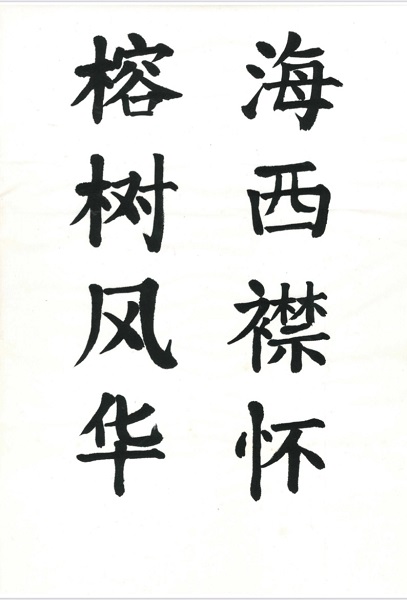 海西襟怀
榕树风华